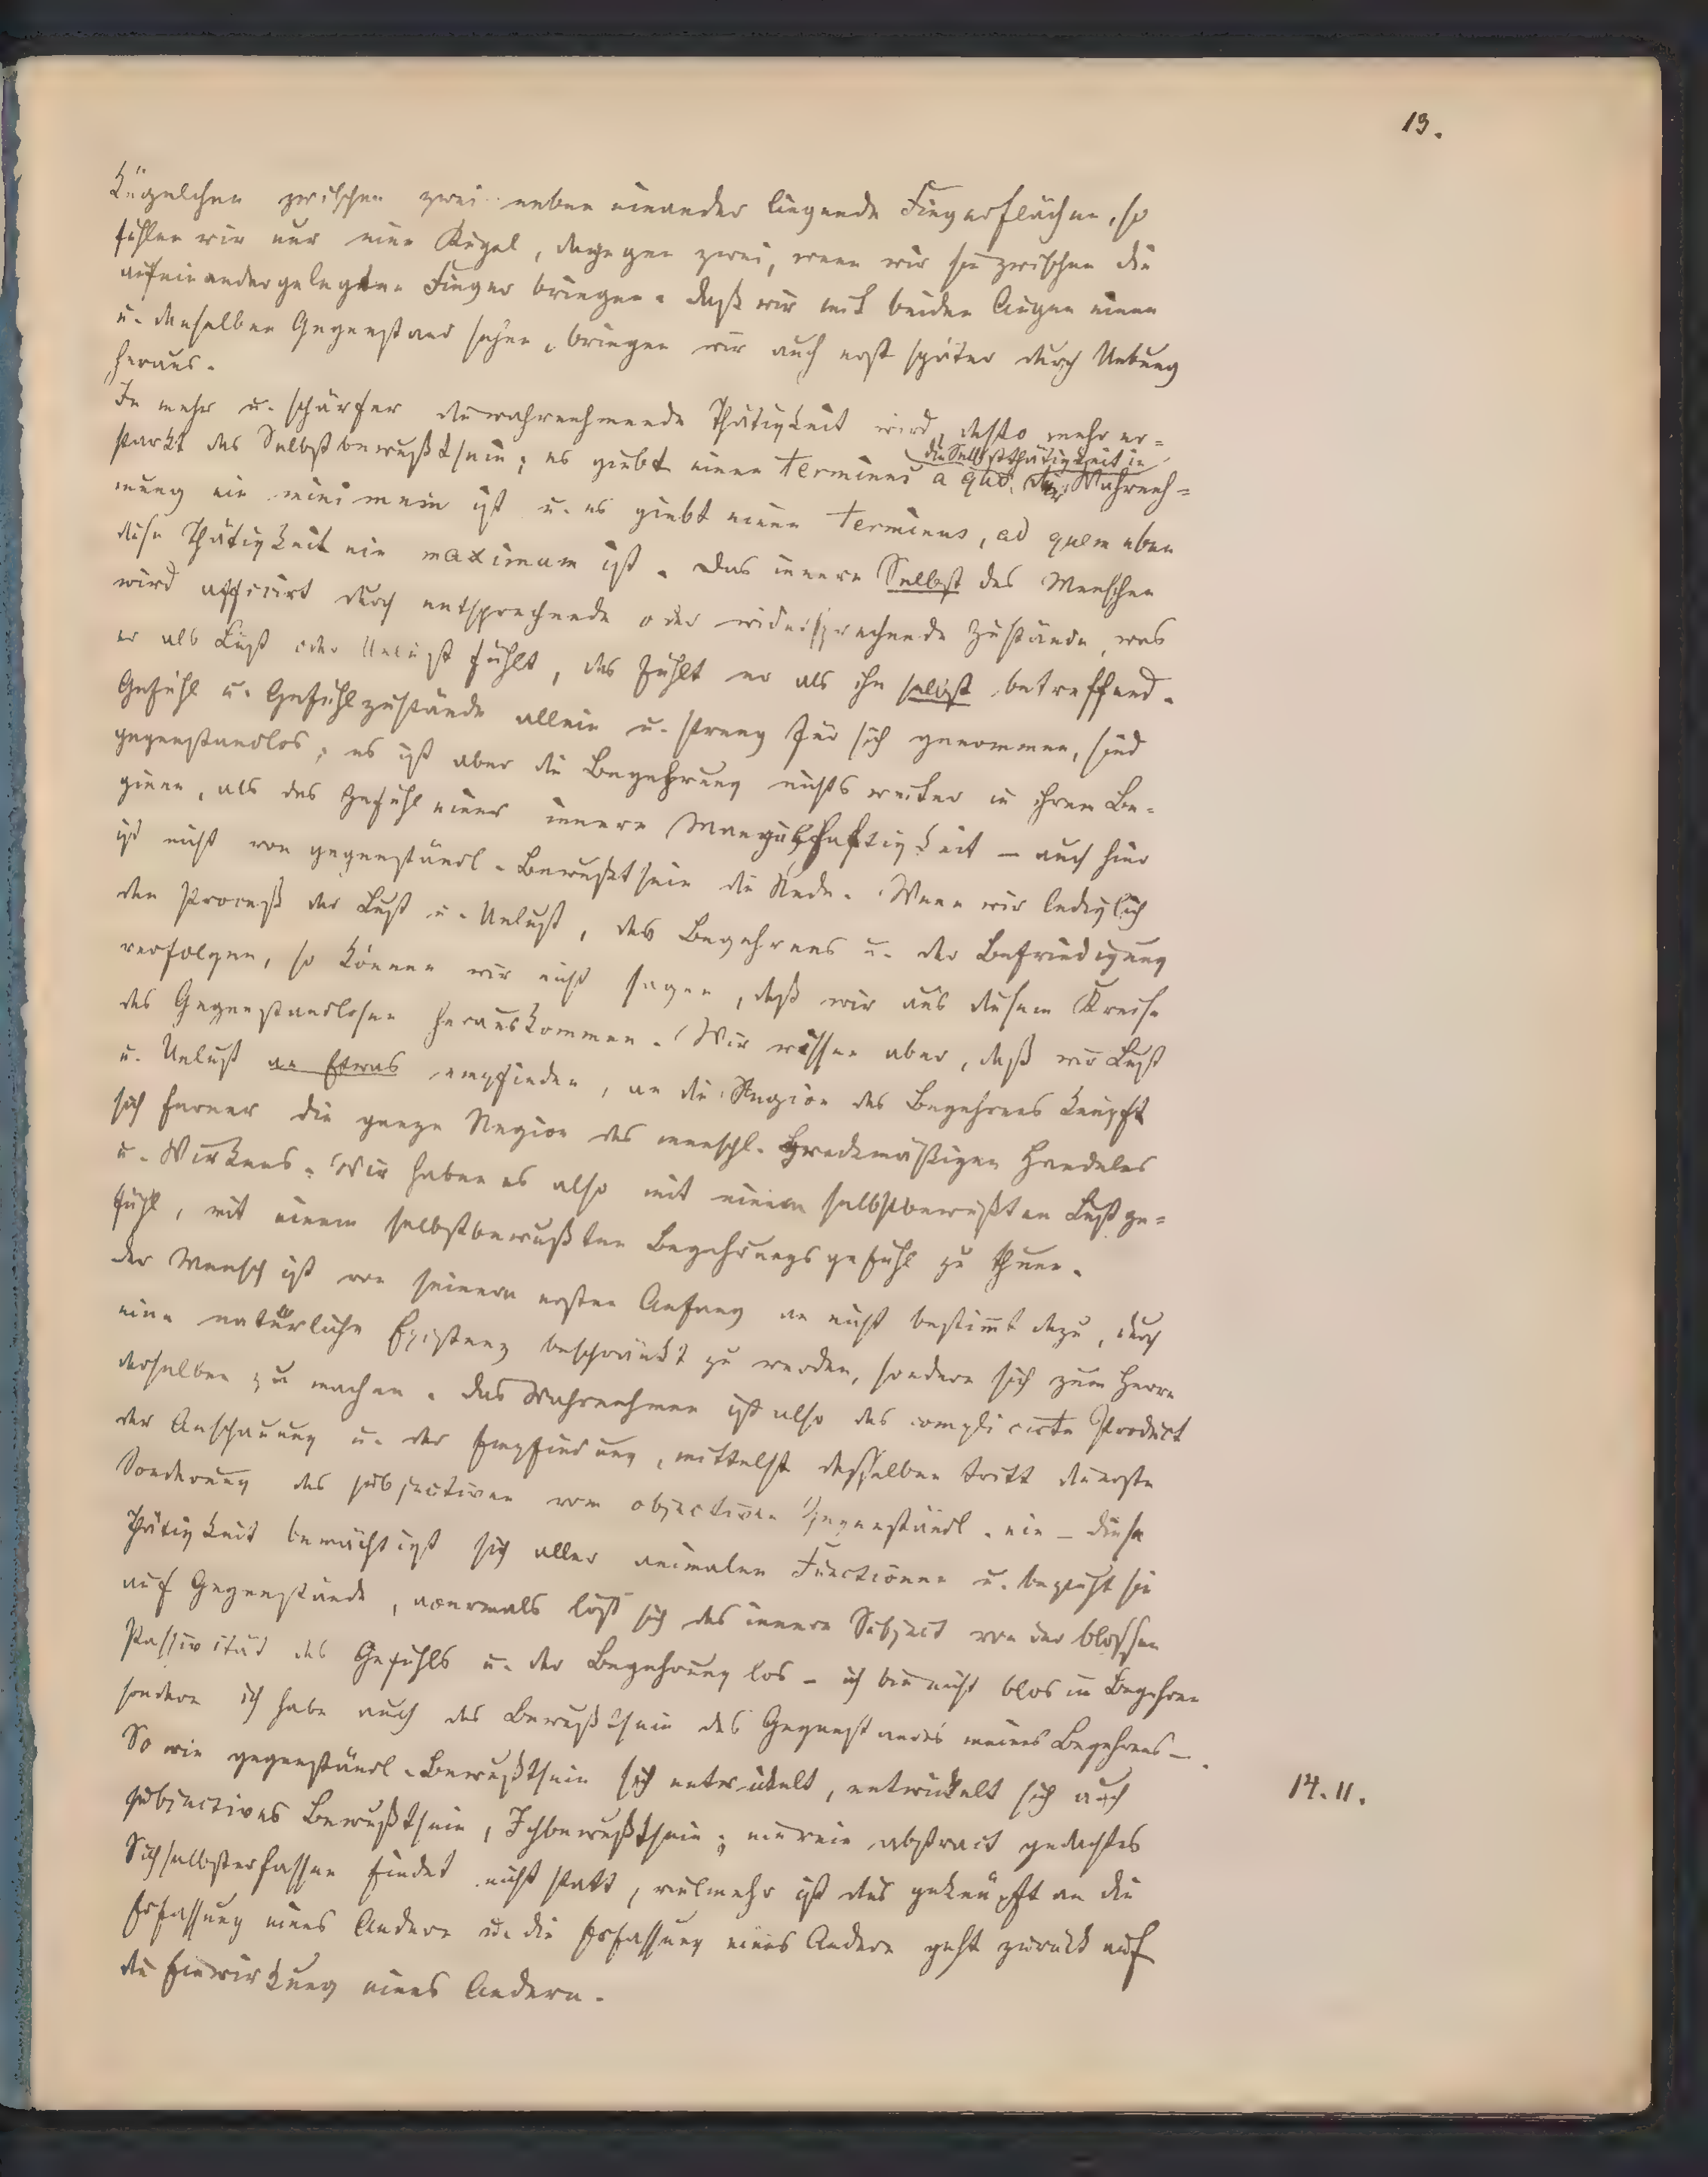 13.
Kügelchen zwischen zwei neben einander liegende Fingerflächen, so
fühlen wir nur eine Kugel, dagegen zwei, wenn wir sie zwischen die
aufeinandergelegten Finger bringen. Daß wir mit beiden Augen einen
u. denselben Gegenstand sehen, bringen wir auch erst später durch Uebung
heraus.
Je mehr u. schärfer die wahrnehmende Thätigkeit wird, desto mehr er=
starkt das Selbstbewußtsein; es giebt einen terminus a quo, die Selbstthätigkeit in der Wahrneh=
mung ein minimum ist u. es giebt einen terminus, ad quem eben
diese Thätigkeit ein maximum ist. Das innere Selbst des Menschen
wird afficirt durch entsprechende oder widersprechende Zustände, was
er als Lust oder Unlust fühlt, das fühlt er als ihn selbst betreffend.
Gefühl u. Gefühlzustände allein u. streng für sich genommen, sind
gegenstandlos; es ist aber die Begehrung nichts weiter in ihrem Be=
ginne, als das Gefühl einer innern Mangelhaftigkeit – auch hier
ist nicht von gegenständl. Bewußtsein die Rede. Wenn wir lediglich
den Proceß der Lust u. Unlust, des Begehrens u. der Befriedigung
verfolgen, so können wir nicht sagen, daß wir aus diesem Kreise
des Gegenstandlosen herauskommen. Wir wissen aber, daß wir Lust
u. Unlust an Etwas empfinden, an die Region des Begehrens knüpft
sich ferner die ganze Region des menschl. zweckmäßigen Handelns
u. Wirkens. Wir haben es also mit einem selbstbewußten Lustge=
fühl, mit einem selbstbewußten Begehrungsgefühl zu thun.
Der Mensch ist von seinem ersten Anfang an nicht bestimt dazu, durch
eine natürliche Existenz beschränkt zu werden, sondern sich zum Herrn
derselben zu machen. Das Wahrnehmen ist also das complicirte Product
der Anschauung u. der Empfindung, mittelst desselben tritt die erste
Sonderung des subjectiven vom objectiven Gegenständl. ein – diese
Thätigkeit bemächtigt sich aller animalen Functionen u. bezieht sie
auf Gegenstände, nunmals löst sich das innere Subject von der blossen
Passivität des Gefühls u. der Begehrung los – ich bin nicht blos im Begehren
sondern ich habe auch das Bewußtsein des Gegenstandes meines Begehrens –.
So wie gegenständl. Bewußtsein sich entwickelt, entwickelt sich auch
14. 11.
subjectives Bewußtsein, Ichbewußtsein; ein rein abstract gedachtes
Sichselbsterfassen findet nicht statt, vielmehr ist dies geknüpft an die
Erfassung eines Andern u. die Erfassung eines Andern geht zurück auf
die Einwirkung eines Andern.